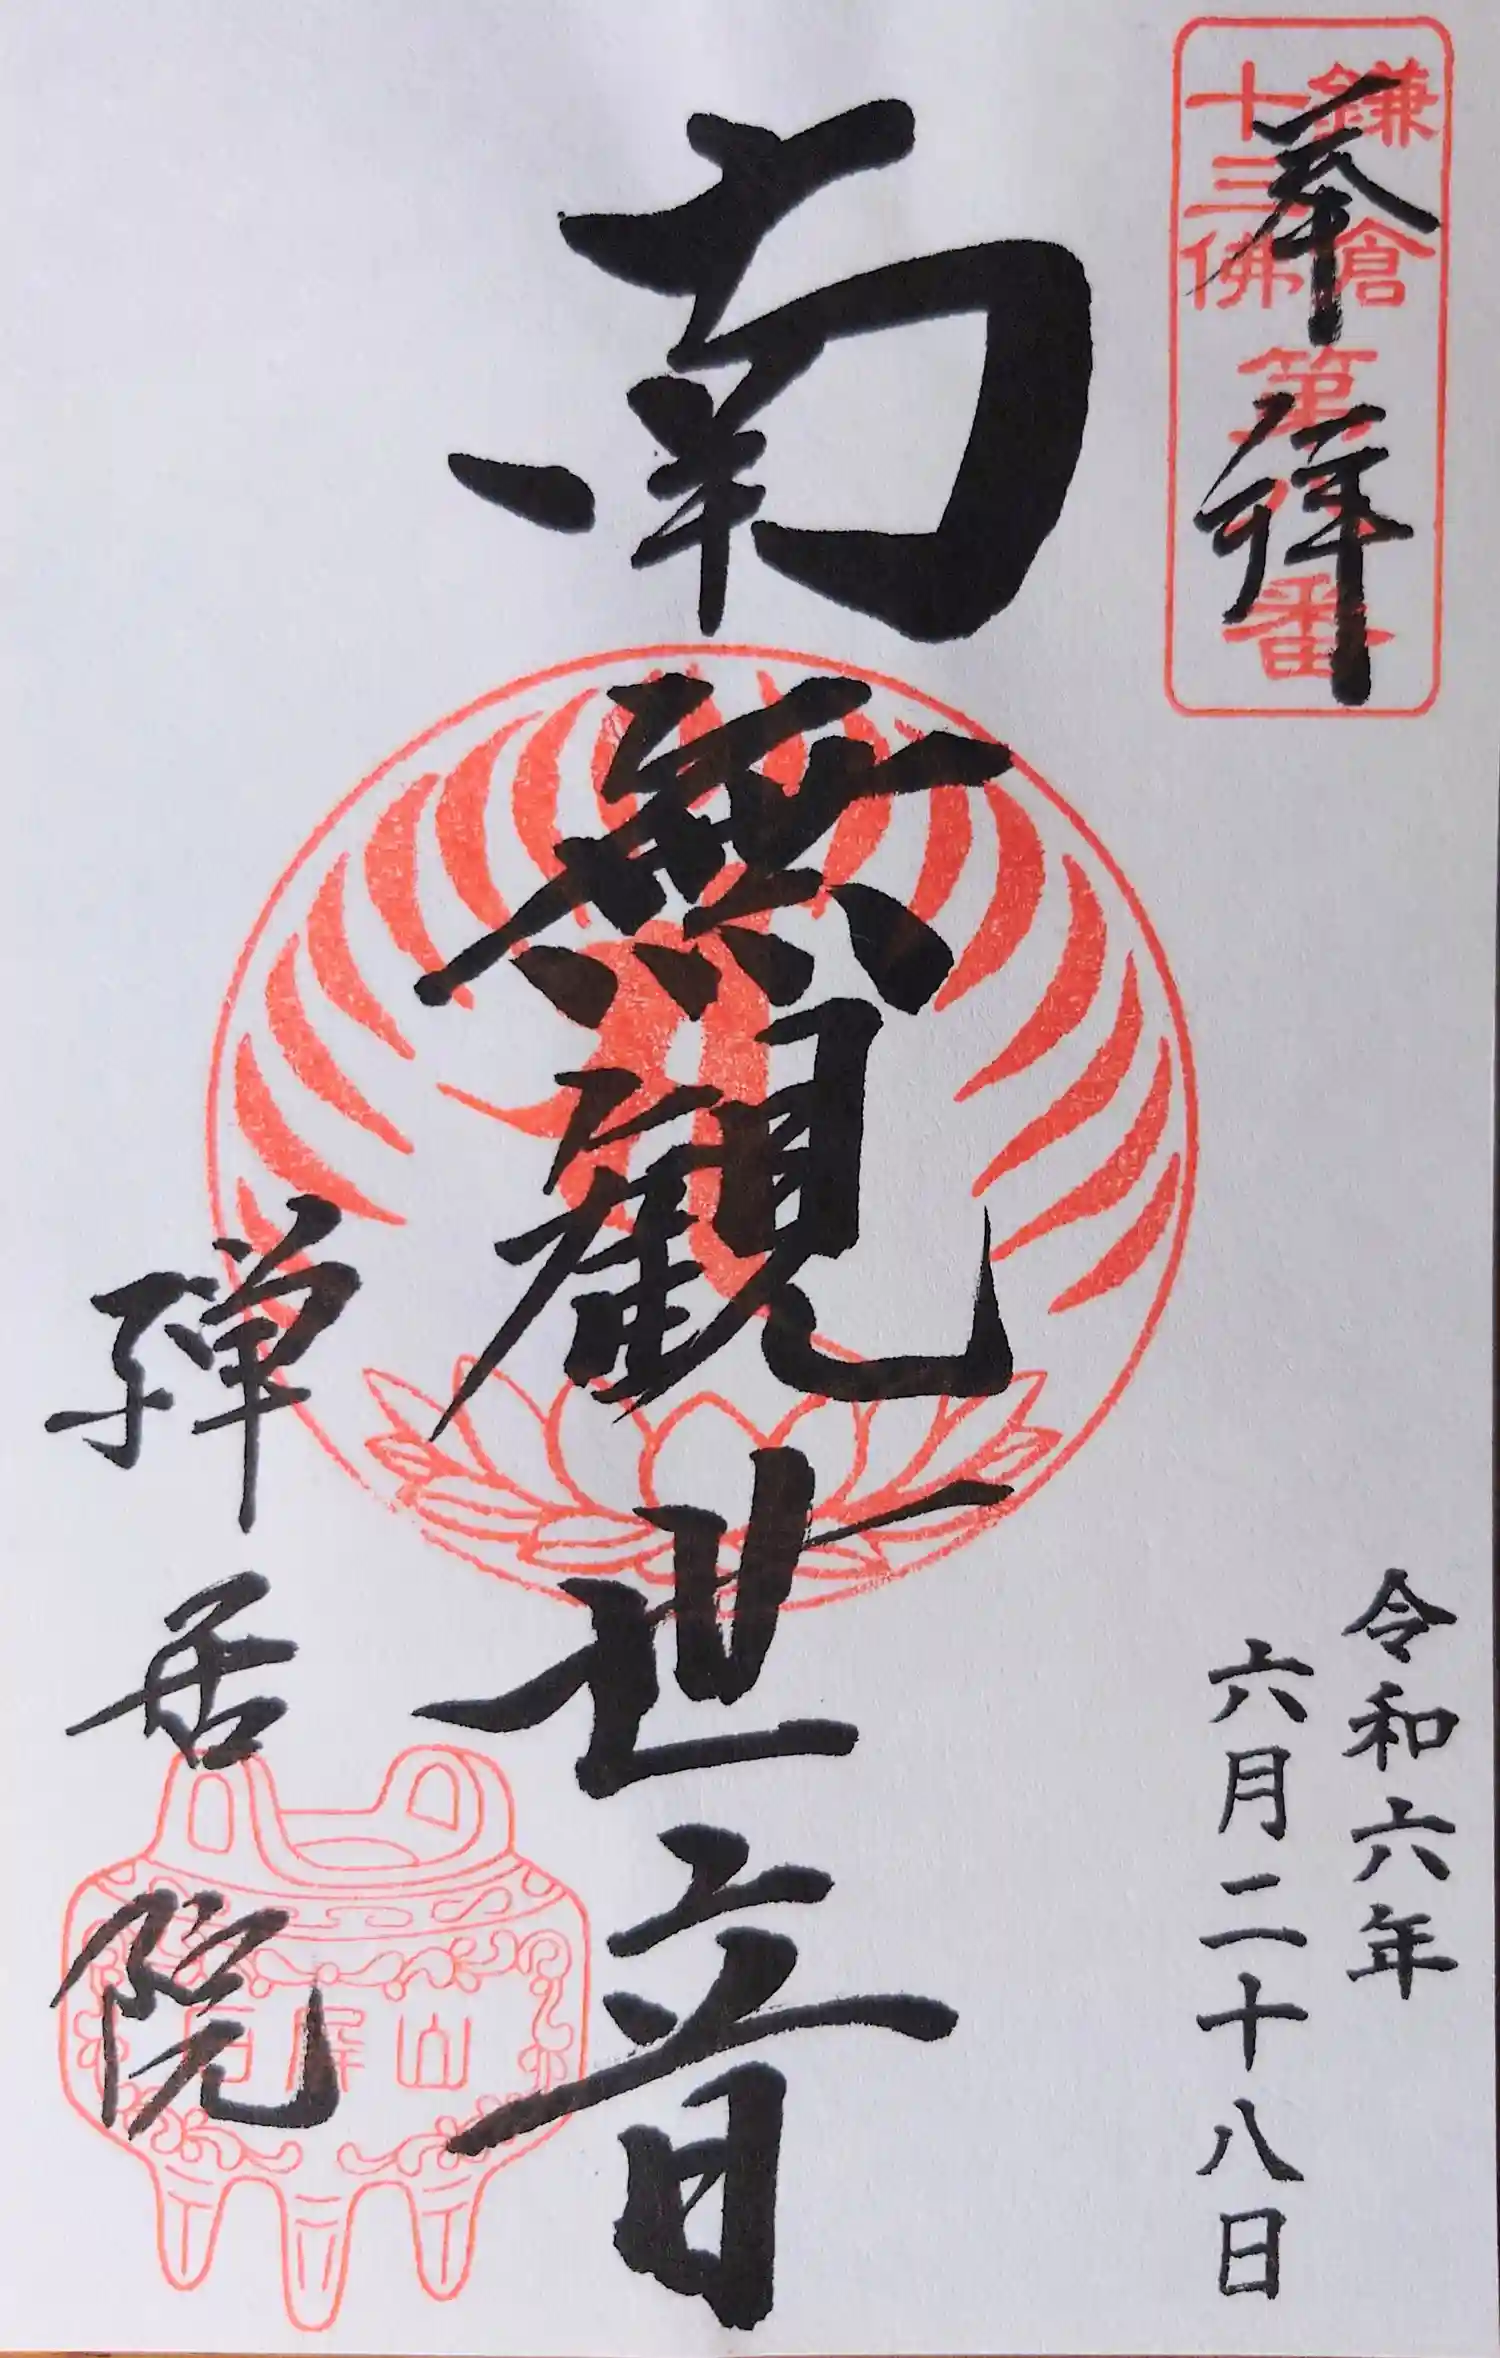 奉拝
鎌倉
十三佛
第八番
令和六年
六月二十八日
南無観世音
禅居院
石屏山